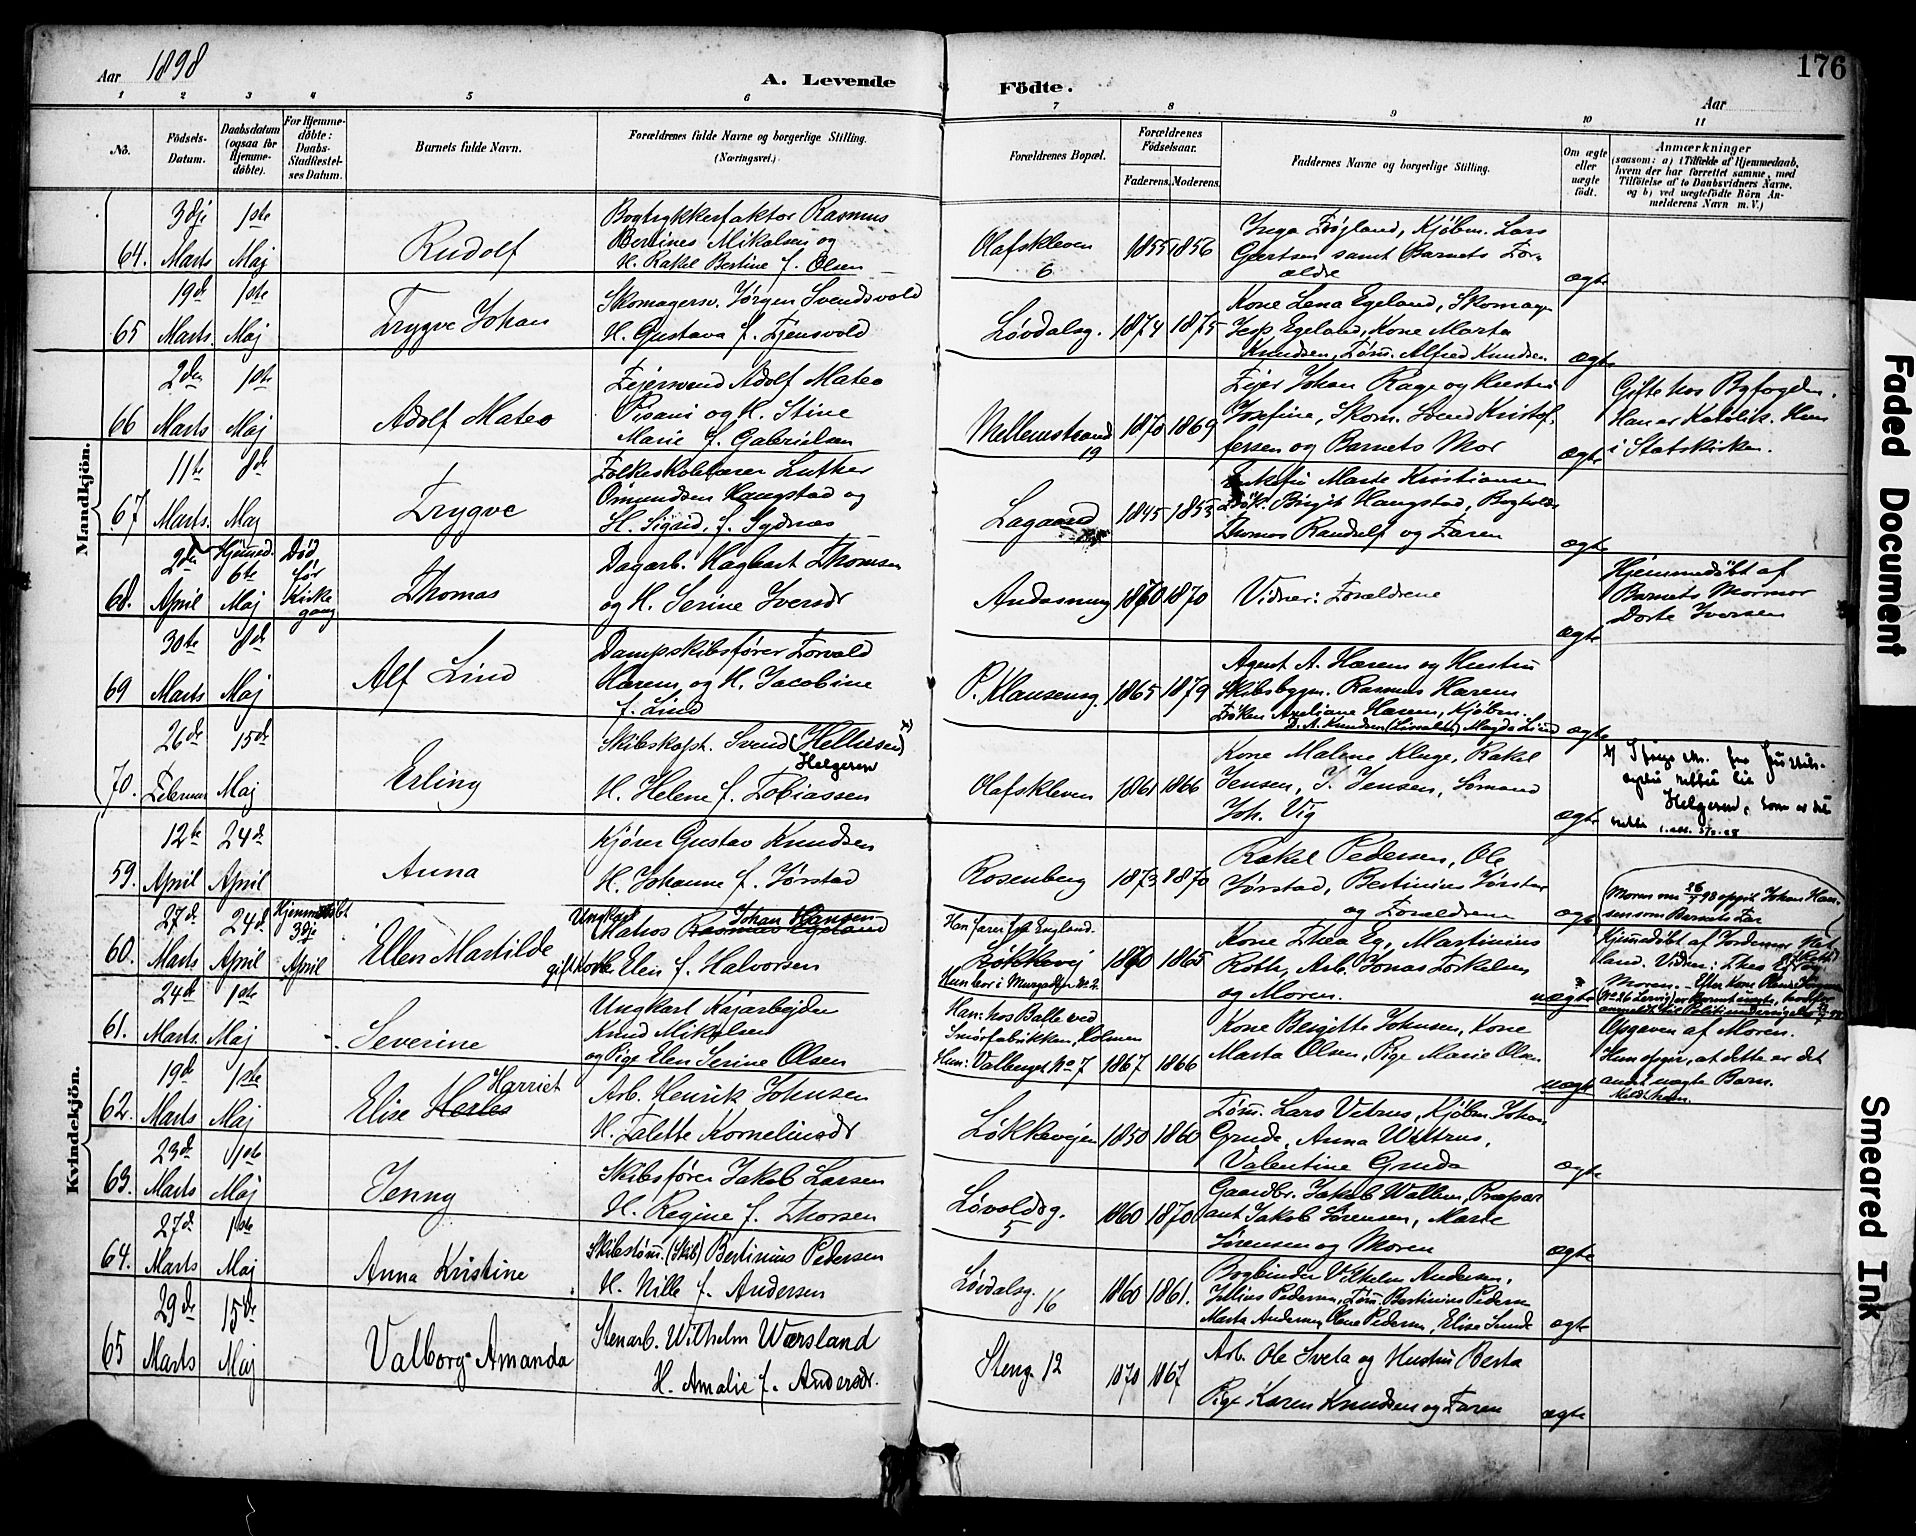 Aar 1898
A. Levende Födte.
176
Aar
1 2 3 4 5 6 7 8 9 10 11
No.
Födsels-Datum.
Daabsdatum (ogsaa for Hjemme-döbte).
For Hjemme-döbte: Daabs-Stadfæstel-ses Datum.
Barnets fulde Navn.
Forældrenes fulde Navne og borgerlige Stilling. (Næringsvei.)
Forældrenes Bopæl.
Forældrenes Födselsaar.
Faderens. Moderens.
Faddernes Navne og borgerlige Stilling.
Om ægte eller uægte födt.
Anmærkninger
(saasom: a) i Tilfælde af Hjemmedaab, hvem der har forrettet samme, med Tilföielse af to Daabsvidners Navne, og b) ved uægtefödte Börn An-melderens Navn m. V.)
Mandkjön.
64. 3dje Marts 1ste Maj
Rudolf
Bogtrykkerfaktor Rasmus
Bertines Mikalsen og
H. Rakel Bertine f. Olsen
Olafskleven 6
1855 1856
Inga Fögland, Kjöbm. Lars
Gjertsen samt Barnets For-
ældre
ægte
65 19d Marts. 1ste Maj
Trygve Johan
Skomagersv. Jørgen Svendsvold
H. Gustava f. Tjensvold
Løvdalsg.
1874 1875
Kone Lena Egeland, Skomag.
Jesp Egeland, Kone Marta
Knudsen, Tøm. Alfred Knudsen
ægte
66 2den Marts 1ste Maj
Adolf Mateo
Fejersvend Adolf Mateo
Pisani og H. Stine
Marie f. Gabrielsen
Mellemstrand 19
1870 1869
Fejer Johan Rage og Hustru
Josefine, Skom. Svend Kristof-
fersen og Barnets Mor
ægte
Gifte hos Byfogden.
Han er Katolik. Hun
i Statskirken.
67 11te Marts. 8de Maj
Trygve
Folkeskolelærer Luther
Omundsen Haugstad og
H. Sigrid, f. Sydnæs
Lagaard
1845 1853
Enkefru Marte Kristiansen
Frök. Birgit Haugstad, Bogholder
Thomas Randulf og Faren
ægte
68. 2den April Hjemmed. 6te Maj
Død før Kirkegang
Thomas
Dagarb. Hagbart Thomsen
og H. Serine Iversdr
Andasmug
1870 1870
Vidner: Forældrene
ægte
Hjemmedöbt af
Barnets Mormor
Dorte Iversen
69 30te Marts 8de Maj
Alf Lind
Dampskibsfører Torvald
Harem og H. Jacobine
f. Lind
P. Klausensg.
1865 1879
Agent A. Harem og Hustru
Skibsbyggm. Rasmus Harem
Fröken Aneliane Harem, Kjöbm.
D. A. Knudsen Magda Lind
ægte
70. 26de Februar 15de Maj
Erling
Skibskapt. Svend (Hellusen) x)
Helgesen
H. Helene f. Tobiassen
Olafskleven
1861 1866
Kone Malene Kluge, Rakel
Jensen, J. Jensen, Sömand
Joh. Vig
ægte
Helgesen, som er det
rette
Kvindekjön.
59. 12te April 24de April
Anna
Kjörer Gustav Knudsen
H. Johanne f. Jørstad
Rosenberg
1873 1870
Rakel Pedersen, Ole
Jørstad, Bertinius Jørstad
og Forældrene
ægte
Moren om 26/7 98 oppg. Johan Han-
sen som Barnets Far
60. 27de Marts 24de April
Hjemmedöbt 3dje April
Ellen Martilde
Ungkarl Johan Hansen
Matros Rasmus Egeland
gift Kone Elen f. Halvorsen
Han farer fra England.
Løkkevej
Hun bor i Murgaden No 2.
1860 1865
Kone Thea Eg, Martinius
Roth, Arb. Jonas Torkelsen
og Moren.
uægte
Hjemmedöbt af Jordemor
land. Vidner: Thea Eg og
Moren.
61. 24de Marts. 1ste Maj
Severine
Ungkarl Kajarbejder
Knud Mikalsen
og Pige Elen Serine Olsen
Han: hos Balle ved
Smörfabrikken, Holmen
Hun: Valberget No 7
1867 1866
Kone Bergitte Johnsen, Kone
Marta Olsen, Pige Marie Olsen
uægte
Opgaven af Moren.
Hun opgir, at dette er det
andet uægte Barn.
62. 19de Marts 1ste Maj
Elise Harriet
Arb. Henrik Johnsen
H. Talette Korneliusdr
Løkkevejen
1850 1860
Tøm. Lars Vetrus, Kjöbm. Johan
Grude, Anna Wettrus,
Valentine Gruda
ægte
63. 23de Marts 1ste Maj
Jenny
Skibsfører Jakob Larsen
H. Regine f. Thorsen
Løvoldsg. 5
1860 1870
Gaardbr. Jakob Wallem, Præpar
ant Jakob Sørensen, Marie
Sørensen og Moren
ægte
64. 27de Marts 1ste Maj
Anna Kristine
Skibstøm. (Skib) Bertinius Pedersen
H. Nille f. Andersen
Løvdalsg. 16
1860 1861.
Bogbinder Vilhelm Andersen,
Julius Pedersen, Tøm. Bertinius Pedersen
Marta Andersen, Olene Pedersen, Elise Sunde
ægte
65 29de Marts 15de Maj
Valborg Amanda
Stenarb. Wilhelm Wærsland
H. Amalie f. Andersdr.
Steng. 12
1870 1867
Arb. Ole Sveta og Hustru Berta
Pige Karen Knudsen og Faren
ægte
Faded Document
Smeared Ink